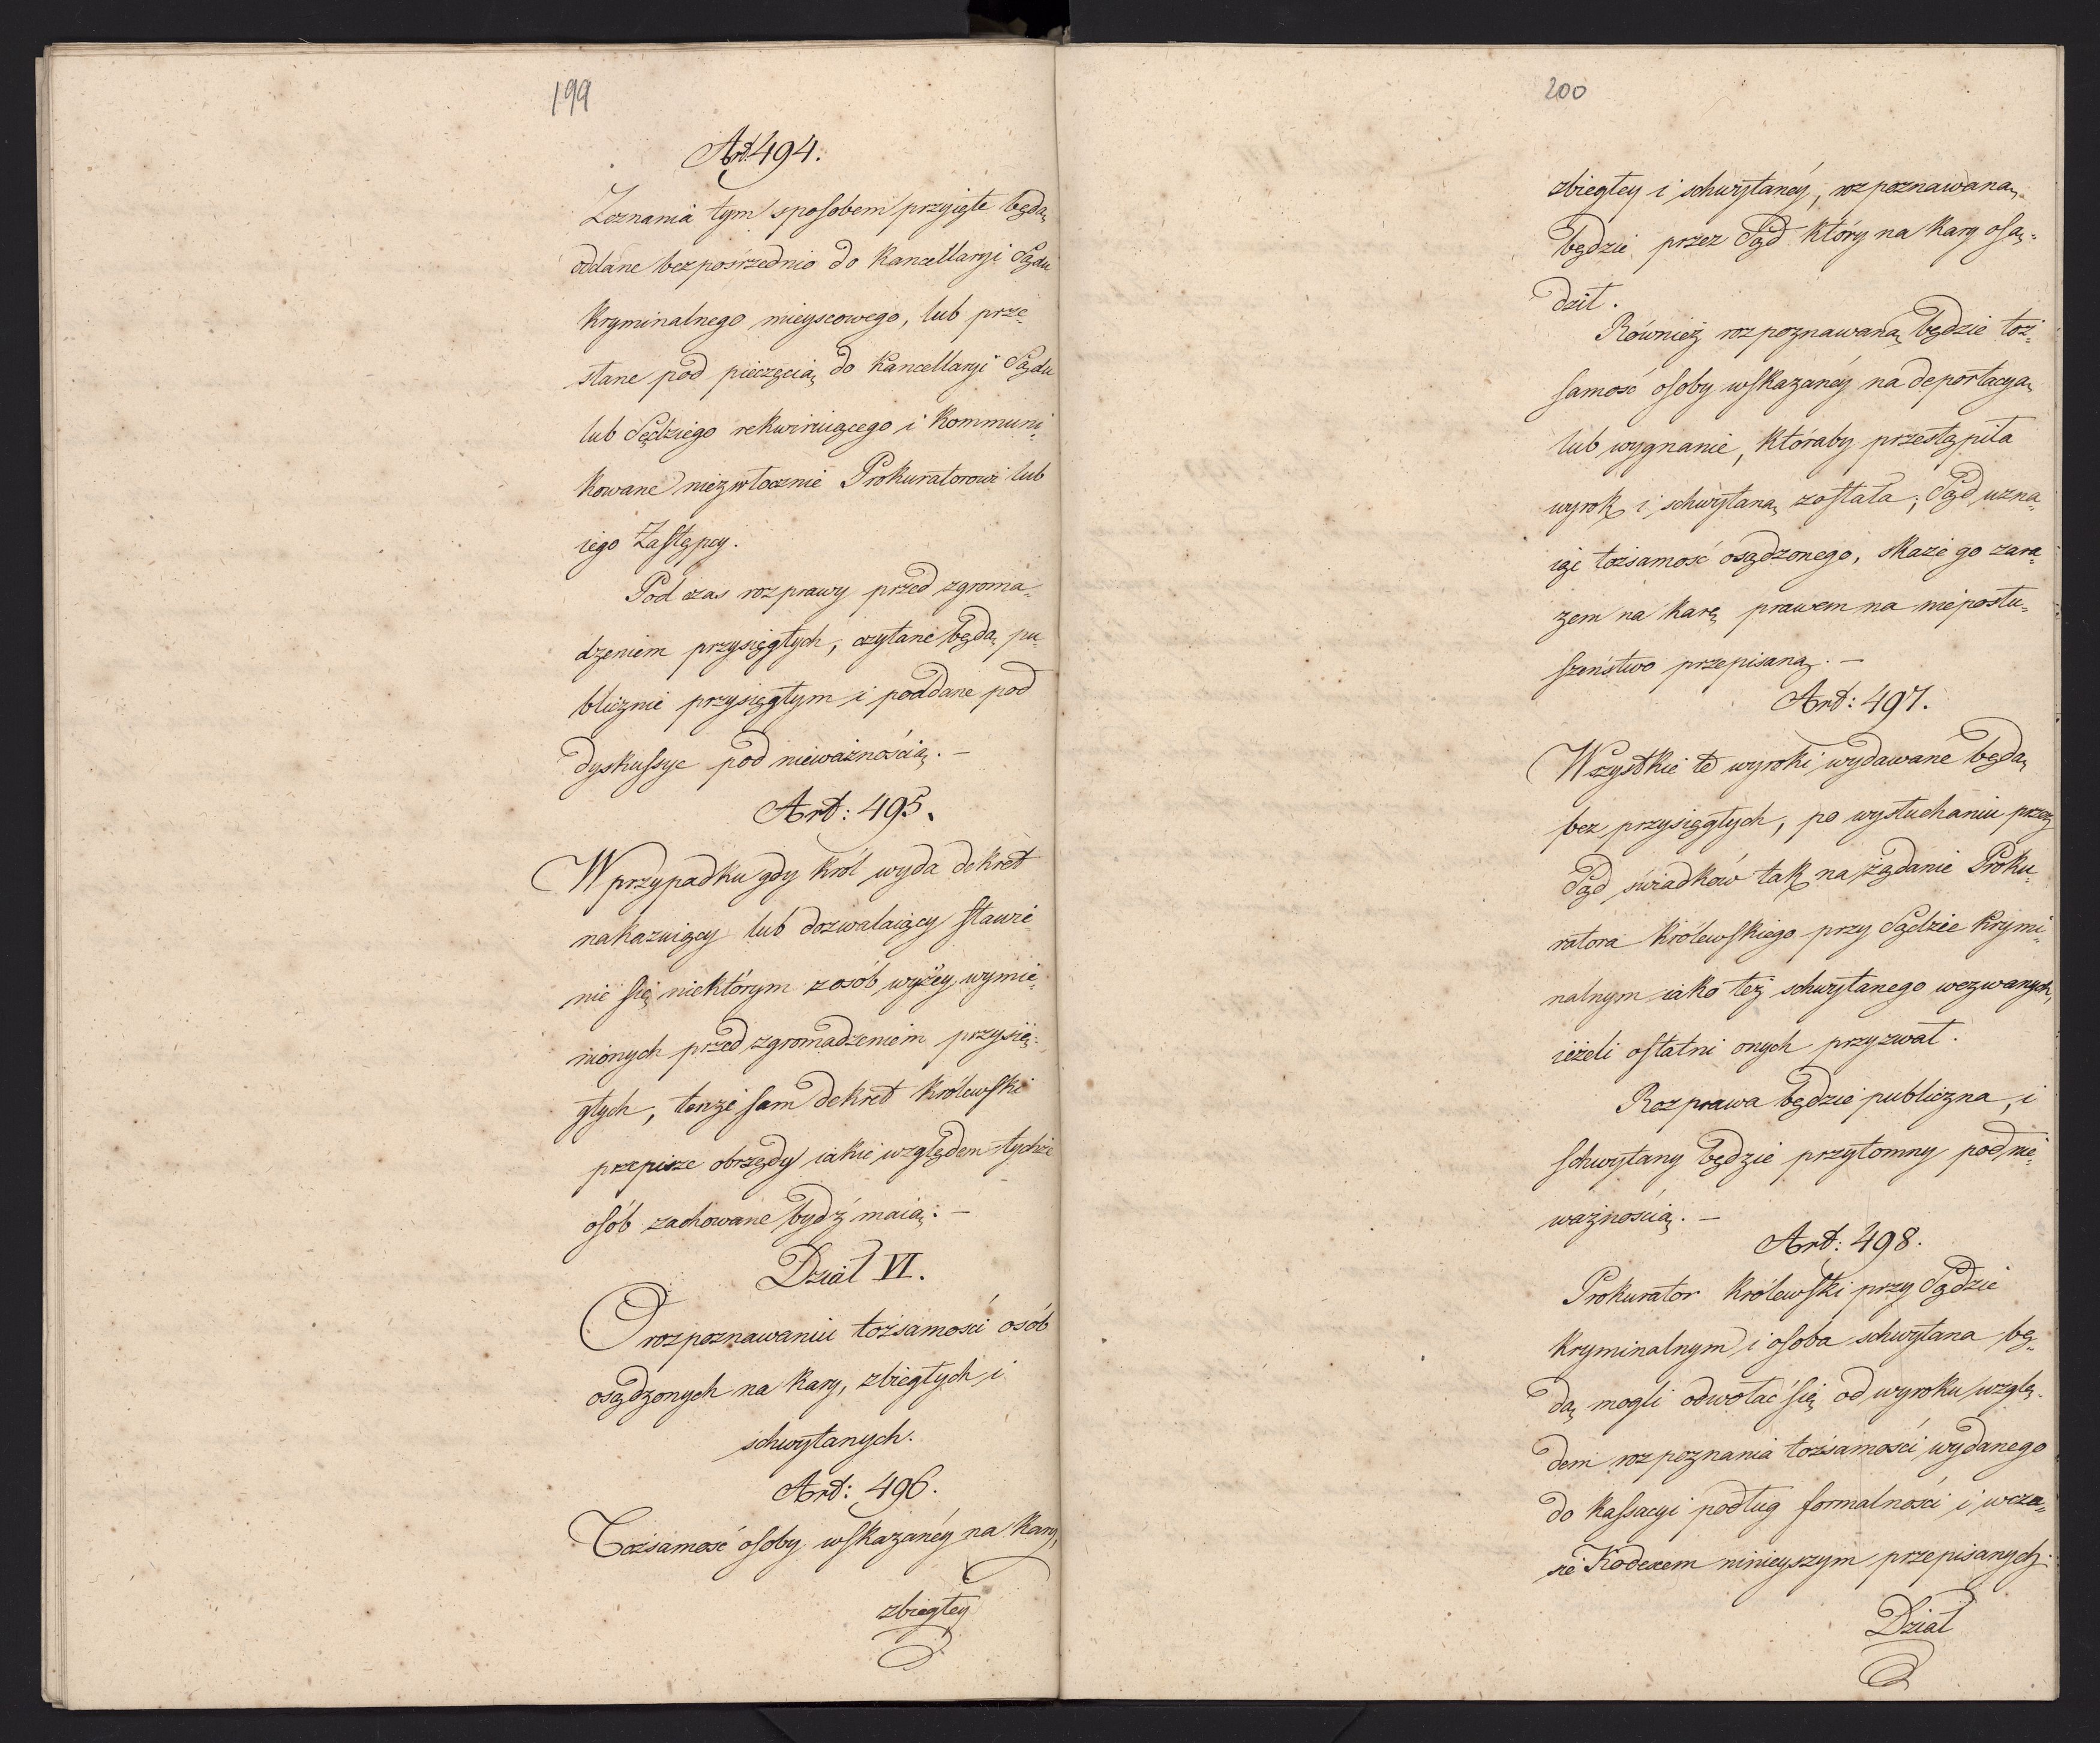 199
Art: 494.
Zeznania tym sposobem przyięte będą
oddane bezpośrzednio do Kancellaryi Sądu
Kryminalnego mieyscowego, lub prze„
słane pod pieczęcią do Kancellaryi Sądu
lub Sędziego rekwiruiącego i Kommuni„
kowane niezwłocznie Prokuratorowi lub
iego Zastępcy.
Pod czas rozprawy przed zgroma„
dzeniem przysięgłych, czytane będą pu„
blicznie przysięgłym i poddane pod
dyskussye pod nieważnością. –
Art: 495.
W przypadku gdy Król wyda dekret
nakazuiący lub dozwalaiący stawie
nie się niektórym z osób wyżey wymie„
nionych przed zgromadzeniem przysię„
głych, tenże sam dekret Królewski
przepisze obrzędy iakie względem tychże
osób zachowane bydź maią. –
Dział VI.
O rozpoznawaniu tożsamości osób
osądzonych na kary, zbiegłych i
schwytanych.
Art: 496.
Tożsamość osoby wskazanéy na kary,
zbiegłey
200
zbiegłey i schwytanéy, rozpoznawaną
będzie przez Sąd który na karę osą„
dził.
Również rozpoznawaną będzie toż„
samość osoby wskazanéy na deportacyą
lub wygnanie, któraby przestąpiła
wyrok i schwytaną została; Sąd uzna„
iąc tożsamość osądzonego, skaże go zara„
zem na karę prawem na nieposłu„
szeństwo przepisaną. –
Art: 497.
Wszystkie te wyroki wydawane będą
bez przysięgłych, po wysłuchaniu przez
Sąd świadków tak na żądanie Proku„
ratora Królewskiego przy Sądzie Krymi„
nalnym iako też schwytanego wezwanych,
ieżeli ostatni onych przyzwał.
Rozprawa będzie publiczna, i
schwytany będzie przytomny pod nie„
ważnością. –
Art: 498.
Prokurator Królewski przy Sądzie
Kryminalnym i osoba schwytana bę„
dą mogli odwołać się od wyroku wzglę„
dem rozpoznania tożsamości wydanego
do Kassacyi podług formalności i w cza„
sie Kodexem ninieyszym przepisanych.
Dział